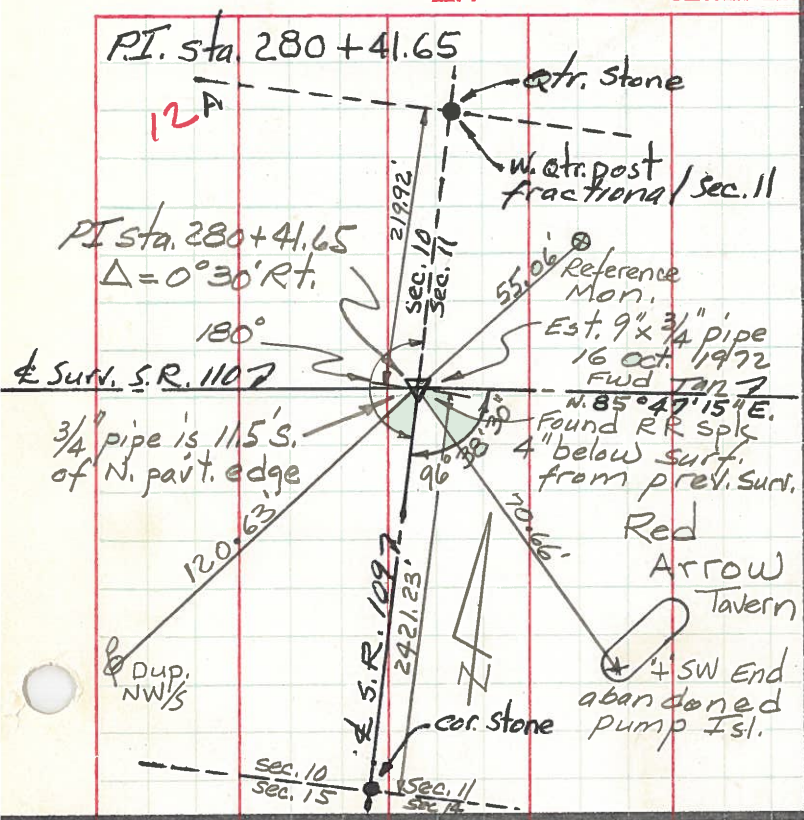 P.I. sta. 280+41.65
Qtr. Stone
12
A
W. Qtr. post
fractional sec. 11
219.92'
sec. 10
sec. 11
PI sta. 280+41.65
Δ = 0°30' Rt.
55.06'
Reference
Mon.
180°
Est. 9" x 3/4" pipe
16 Oct. 1972
℄ Surv. S.R. 110
Fwd Tan
N. 85°47'15" E.
3/4" pipe is 11.5' S.
of N. pav't. edge
Found RR Spk
4" below surf.
from prev. Surv.
96°38'30"
120.63'
70.66'
Red
Arrow
Tavern
℄ S.R. 109
2421.23'
N
Dup.
NW/S
"+" SW End
abandoned
Pump Isl.
cor. stone
sec. 10
sec. 15
sec. 11
sec. 14